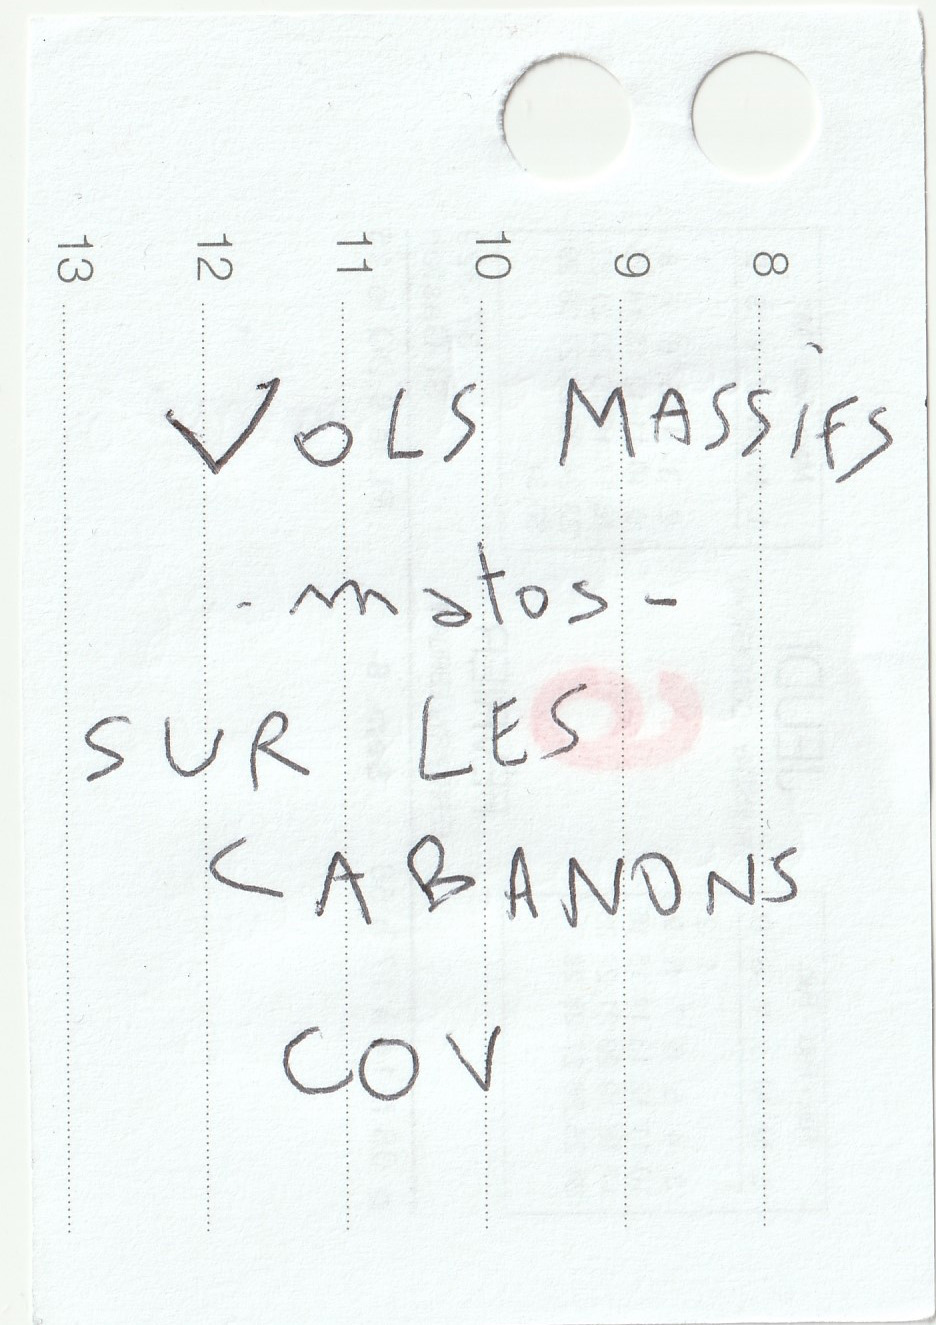 13 12 11 10 9 8
VOLS MASSIFS
- matos -
SUR LES
CABANONS
COV